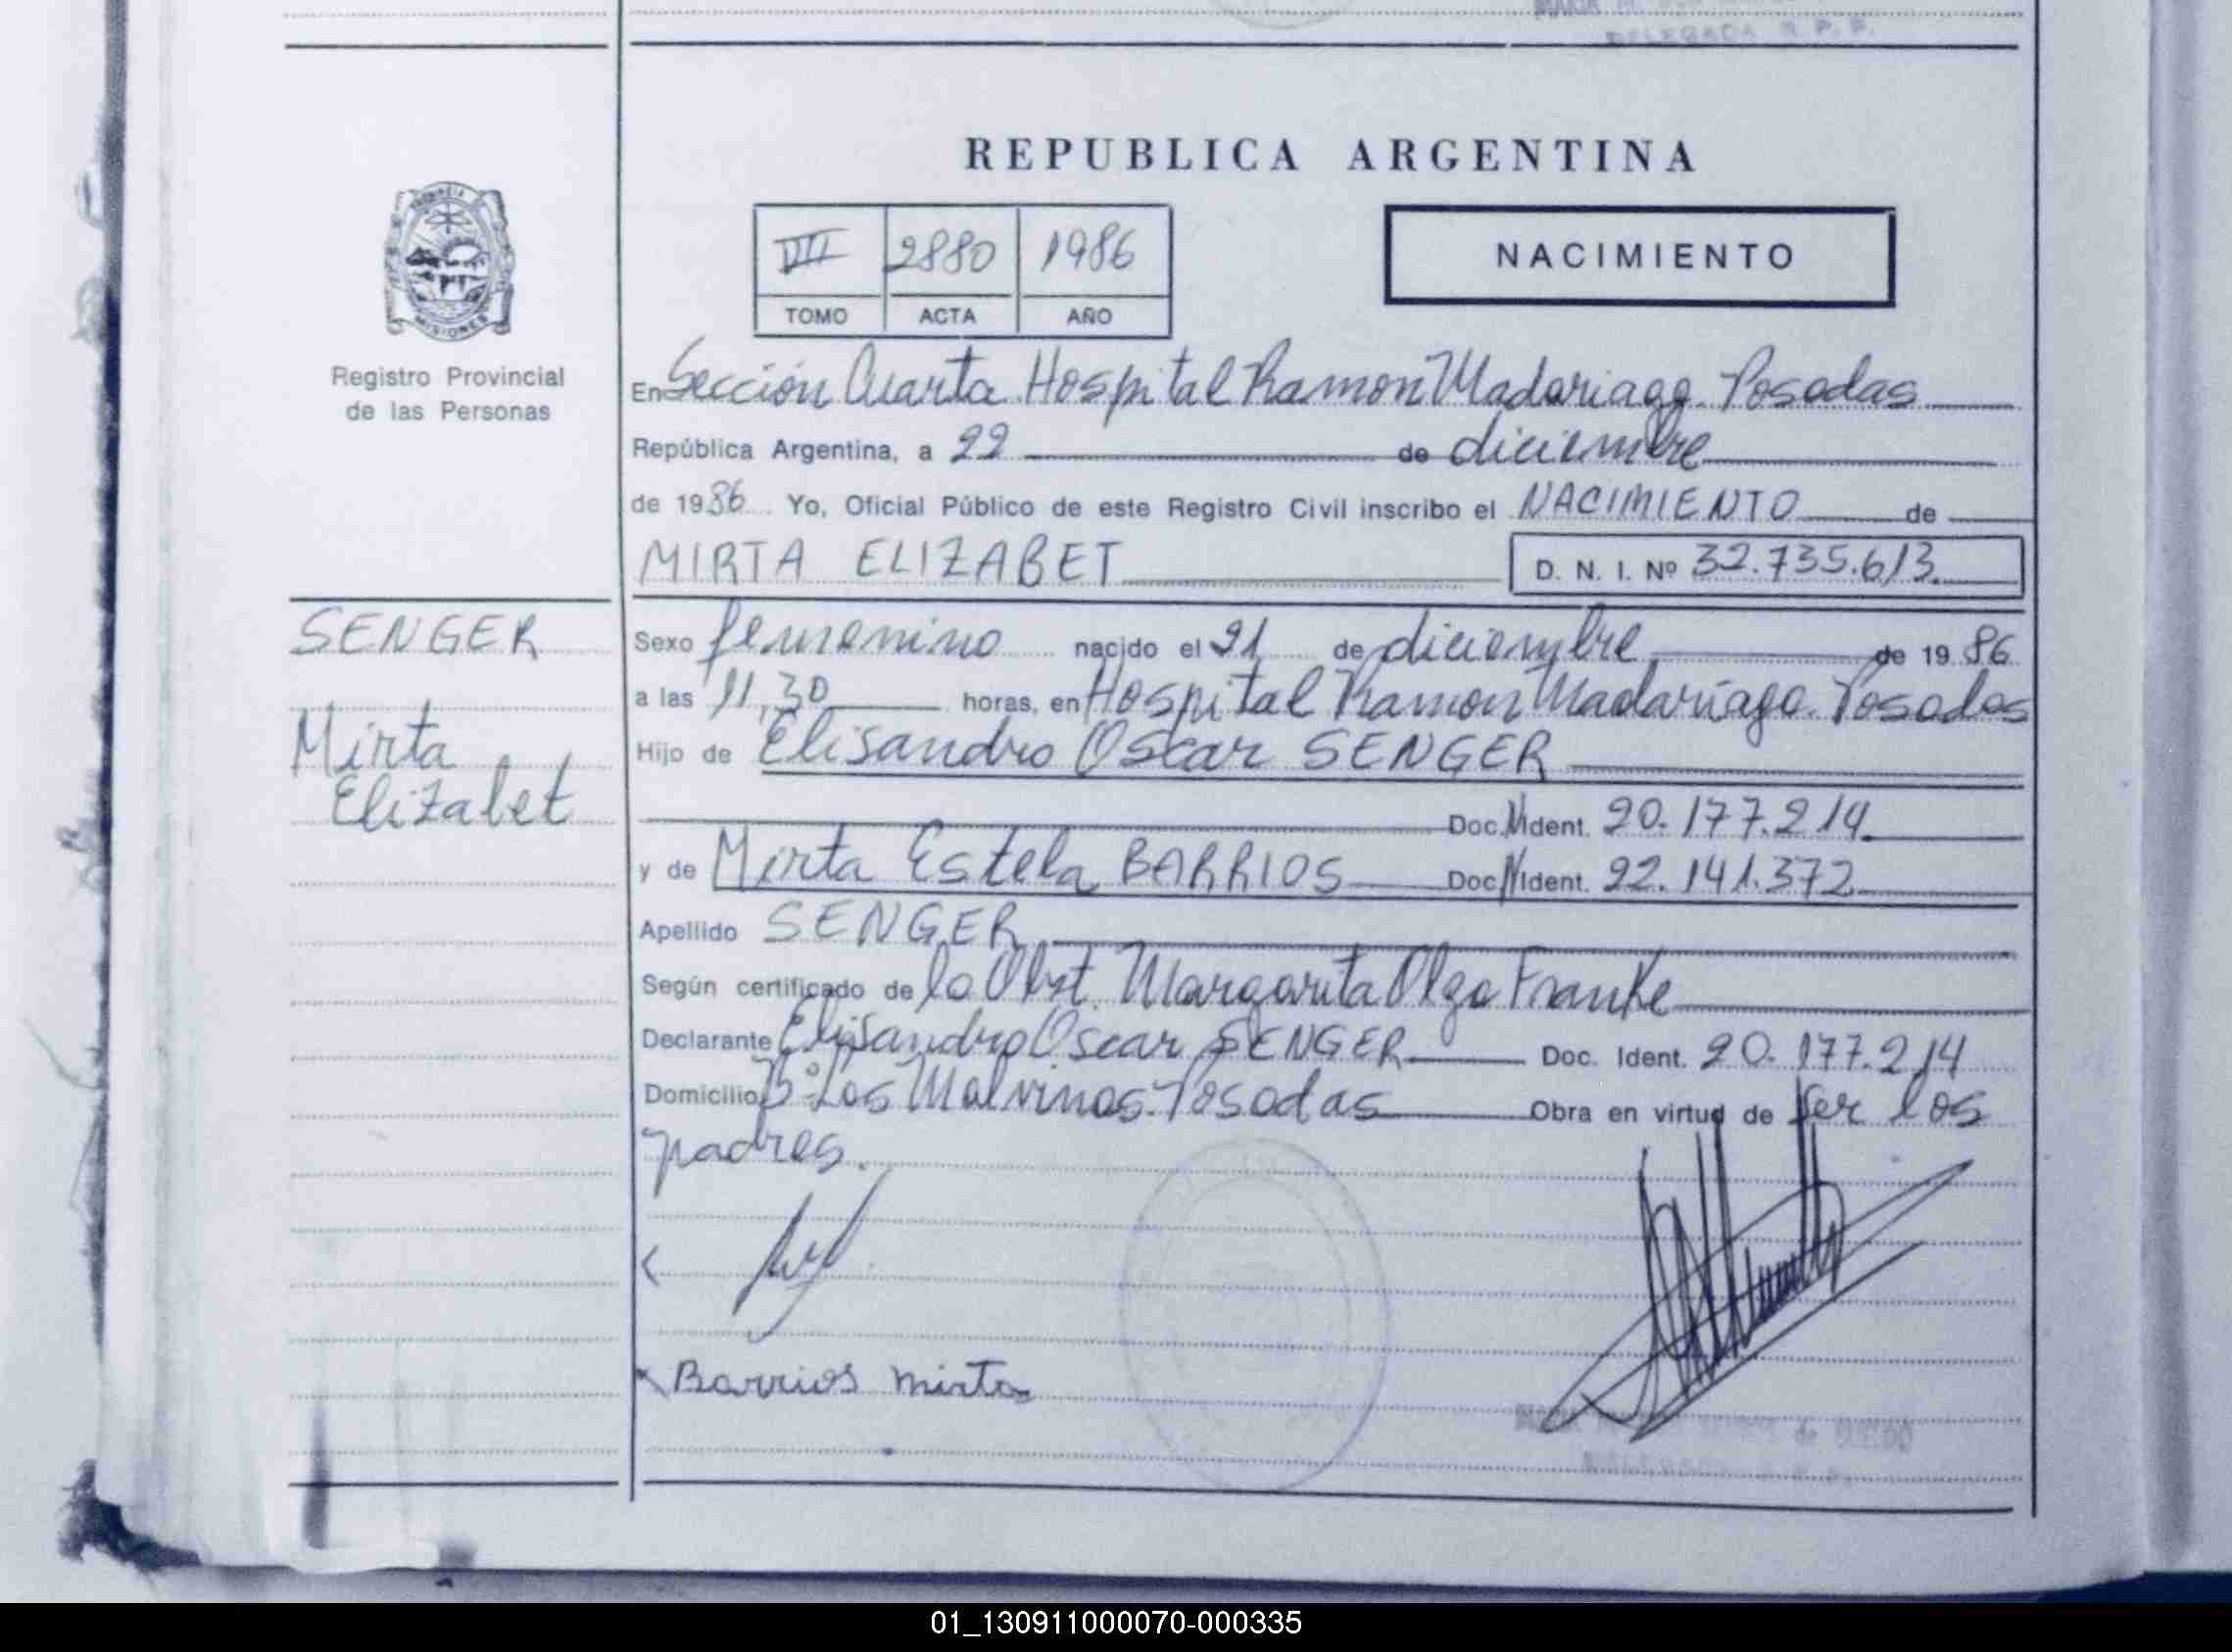 DELEGADA R.P.P.
REPUBLICA ARGENTINA
PROVINCIA
MISIONES
Registro Provincial
de las Personas
VII 2880 1986
TOMO ACTA AÑO
NACIMIENTO
En Sección Cuarta Hospital Ramon Madariaga. Posadas
República Argentina, a 22 de diciembre
de 1986 Yo, Oficial Público de este Registro Civil inscribo el NACIMIENTO de
MIRTA ELIZABET D. N. I. Nº 32.735.613
SENGER
Mirta
Elizabet
Sexo femenino nacido el 21 de diciembre de 1986
a las 11,30 horas, en Hospital Ramon Madariaga. Posadas
Hijo de Elisandro Oscar SENGER
Doc. N Ident. 20.177.214
y de Mirta Estela BARRIOS Doc N Ident. 22.141.372
Apellido SENGER
Según certificado de la Obst. Margarita Olga Franke
Declarante Elisandro Oscar SENGER Doc. Ident. 20.177.214
Domicilio Bº Las Malvinas. Posadas Obra en virtud de ser los
padres.
Barrios mirta
01_130911000070-000335